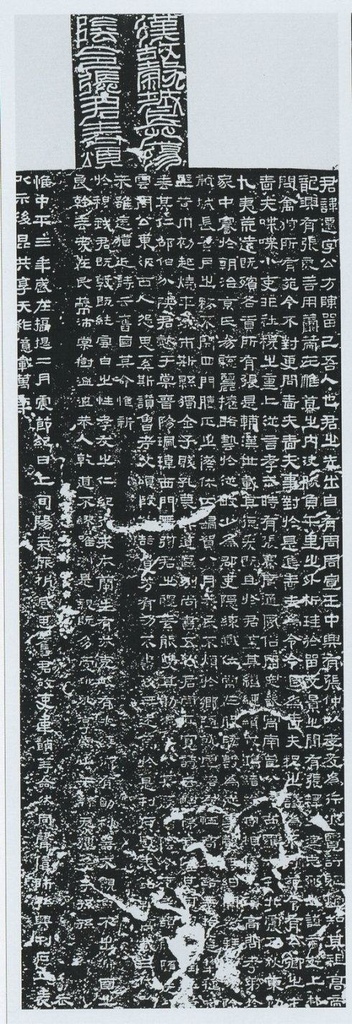 漢故穀城長蕩
陰令張君表頌
君諱遷字公方陳留己吾人也君之先出自有周周宣王中興有張仲以孝友為行披覽詩雅煥知其祖高帝龍
興有張良善用籌策在帷幕之內決勝負千里之外析珪於留文景之間有張釋之建忠弼之謨帝遊上林
問禽狩所有苑令不對更問嗇夫嗇夫事對於是進嗇夫為令令退為嗇夫釋之議為不可苑令有公卿之才
嗇夫喋喋小吏非社稷之重上從言孝武時有張騫廣通風俗開定畿寓南苞八蠻西羈六戎北震五狄東勤
九夷荒遠既殯各貢所有張是輔漢世載其德爰既且於君蓋其繾綣纘戎鴻緒牧守相係不殞高問孝弟於
家中謇於朝治京氏易聰麗權略藝於從畋少為郡吏隱練職位常在股肱數為從事聲無細聞徵拜郎中除穀
城長蠶月之務不閉四門臘正之僚休囚歸賀八月算民不煩於鄉隨就虛落存恤高年路無拾遺犁種宿
野黃巾初起燒平城市斯縣獨全子賤孔蔑其道區別尚書五教君崇其寬詩云愷悌君隆其恩東里潤色
君垂其仁邵伯分陝君懿于棠晉陽珮瑋西門帶弦君之體素能雙其勛流化八基遷蕩陰令吏民頡頏隨送如
雲周公東征西人怨思奚斯讚魯考父頌殷前喆遺芳有功不書後無述焉於是刊石豎表銘勒萬載三代以
來雖遠猶近詩云舊國其命惟新
於穆我君既敦既純雪白之性孝友之仁紀行求本蘭生有芬克岐有兆綏御有勛利器不覿魚不出淵國之
良幹垂愛在民蔽沛棠樹溫溫恭人乾道不繆唯淑是親既多受祉永享南山干祿無疆子子孫孫
惟中平三年歲在攝提二月震節紀日上旬陽氣厥析感思舊君故吏韋萌等僉然同聲賃師孫興刊石立表
以示後昆共享天祚億載萬年